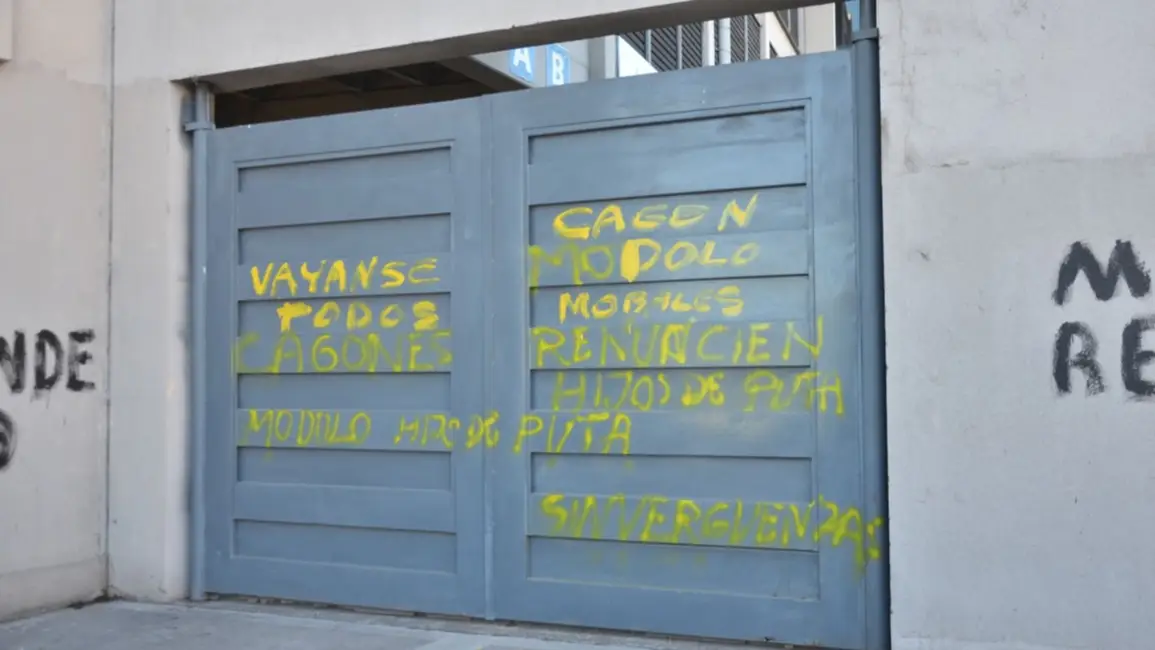 A B
VAYANSE
TODOS
CAGONES
MODOLO HIJO DE PUTA
CAGON
MODOLO
MORALES
RENUNCIEN
HIJOS DE PUTA
SINVERGUENZAS
NDE
M
RE